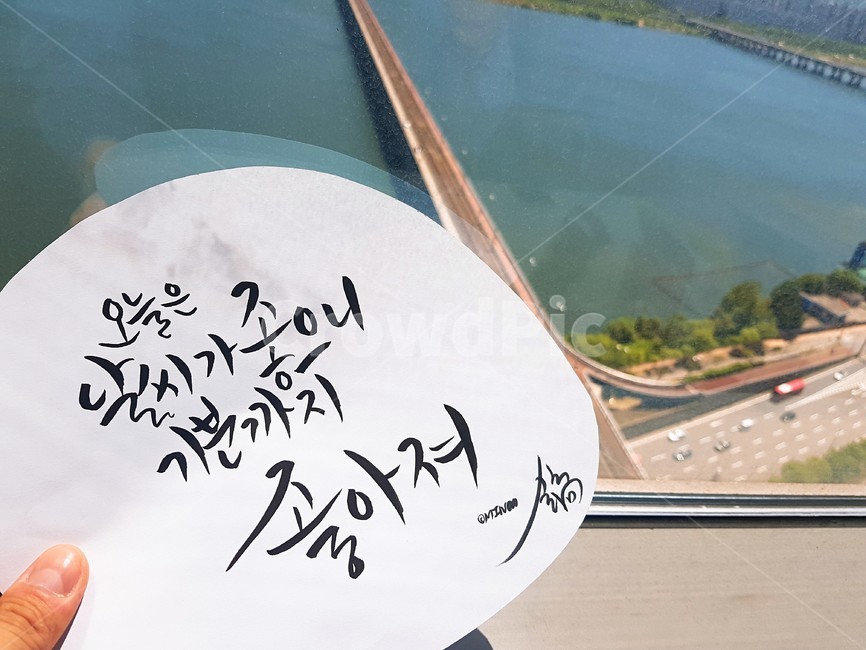 오늘은
날씨가 좋으니
기분까지
좋아져
@MINOO
CrowdPic